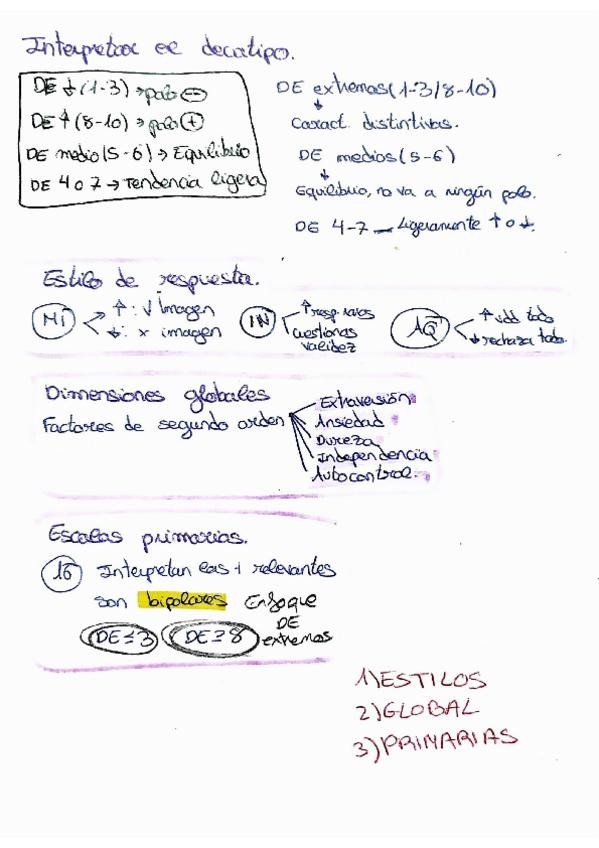 Interpretar el decatipo.
DE ↓ (1-3) → polo ⊖
DE ↑ (8-10) → polo ⊕
DE medio (5-6) → Equilibrio
DE 4 o 7 → Tendencia ligera
DE extremos (1-3/8-10)
↓
Caract. distintivas.
DE medios (5-6)
↓
Equilibrio, no va a ningún polo.
DE 4-7 — Ligeramente ↑ o ↓.
Estilo de respuesta.
MI ↑: √ Imagen
↓: x imagen
IN ↑ resp.
cuestionas
validez
AQ ↑ todo
↓ rechaza todo.
Dimensiones globales
Factores de segundo orden
Extraversión
Ansiedad
Dureza
Independencia
Autocontrol.
Escalas primarias.
16 Interpretan las + relevantes
son bipolares Enfoque
DE
extremos
DE ≤ 3 DE ≥ 8
1) ESTILOS
2) GLOBAL
3) PRIMARIAS